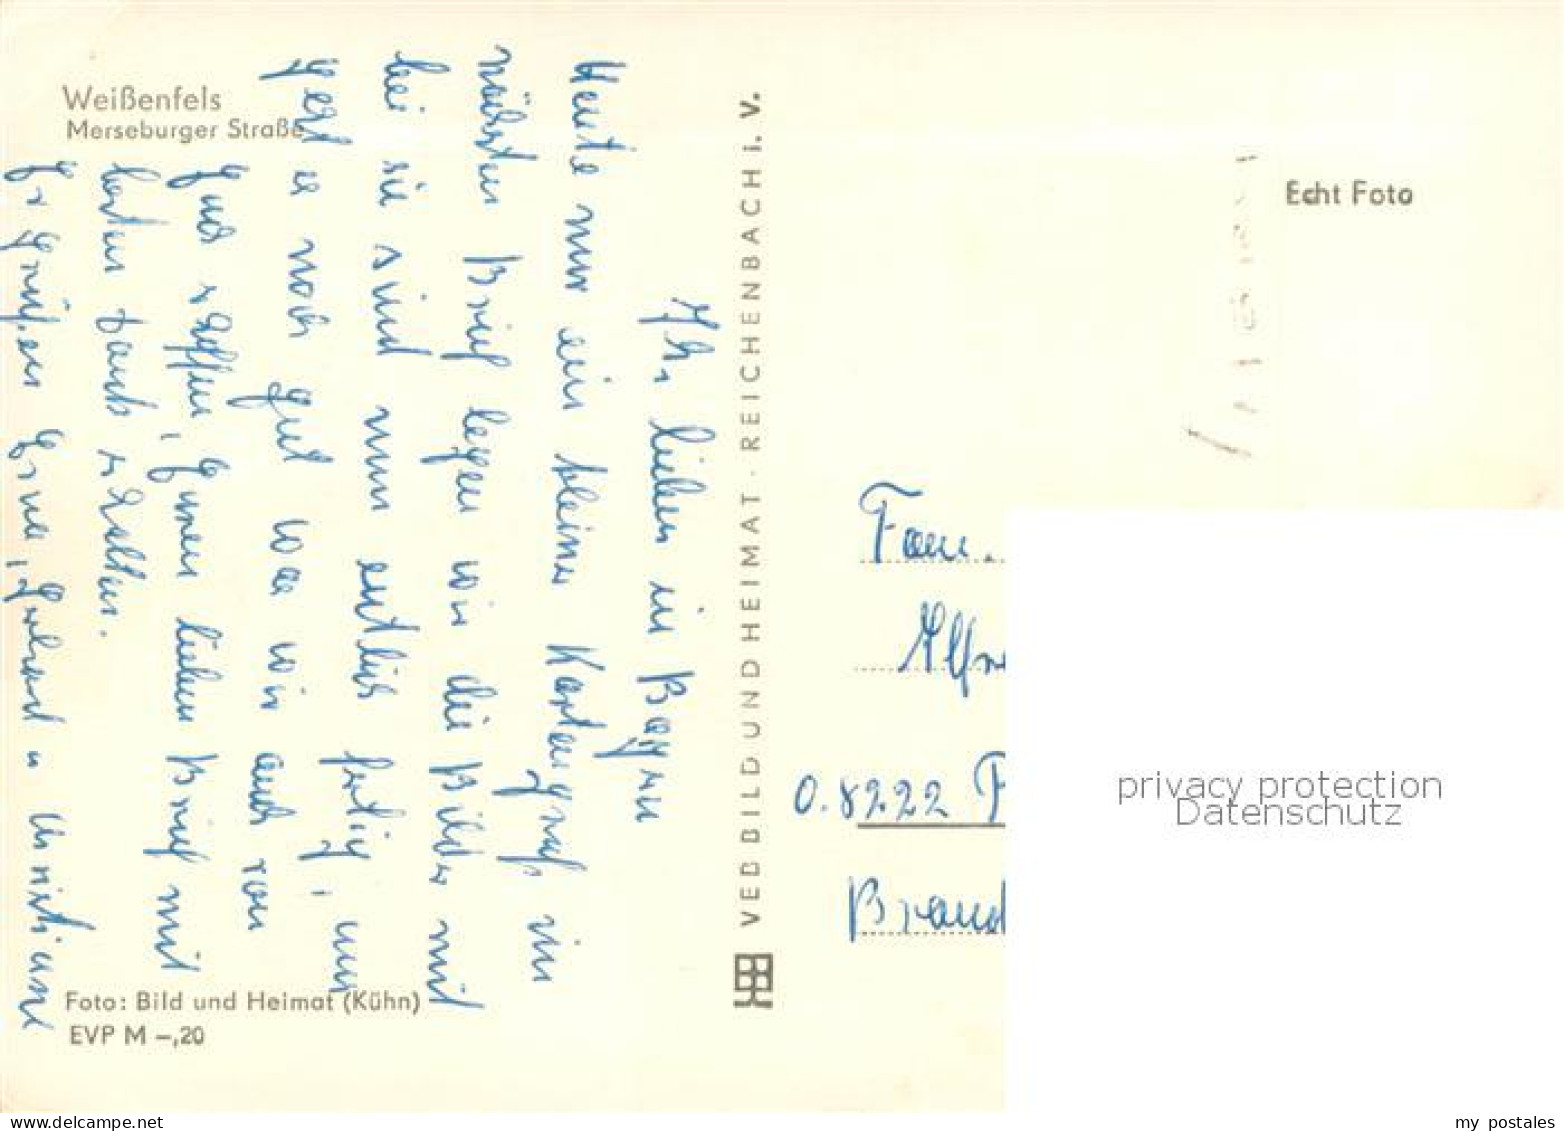 Weißenfels
Merseburger Straße
Ihr lieben in Bayern
Heute nur ein kleiner Kartengruß im
nächsten Brief legen wir die Bilder mit
bei sie sind nun entlich fertig, uns
geht es noch gut was wir auch von
Euch hoffen, Euren lieben Brief mit
besten Dank erhalten.
Es grüßen Erna, Gerhard u Christiane
Foto: Bild und Heimat (Kühn)
EVP M –,20
VEB BILD UND HEIMAT · REICHENBACH i. V.
Echt Foto
Fam.
Alfre
0.8222 F
Brand
privacy protection
Datenschutz
www.delcampe.net
my_postales